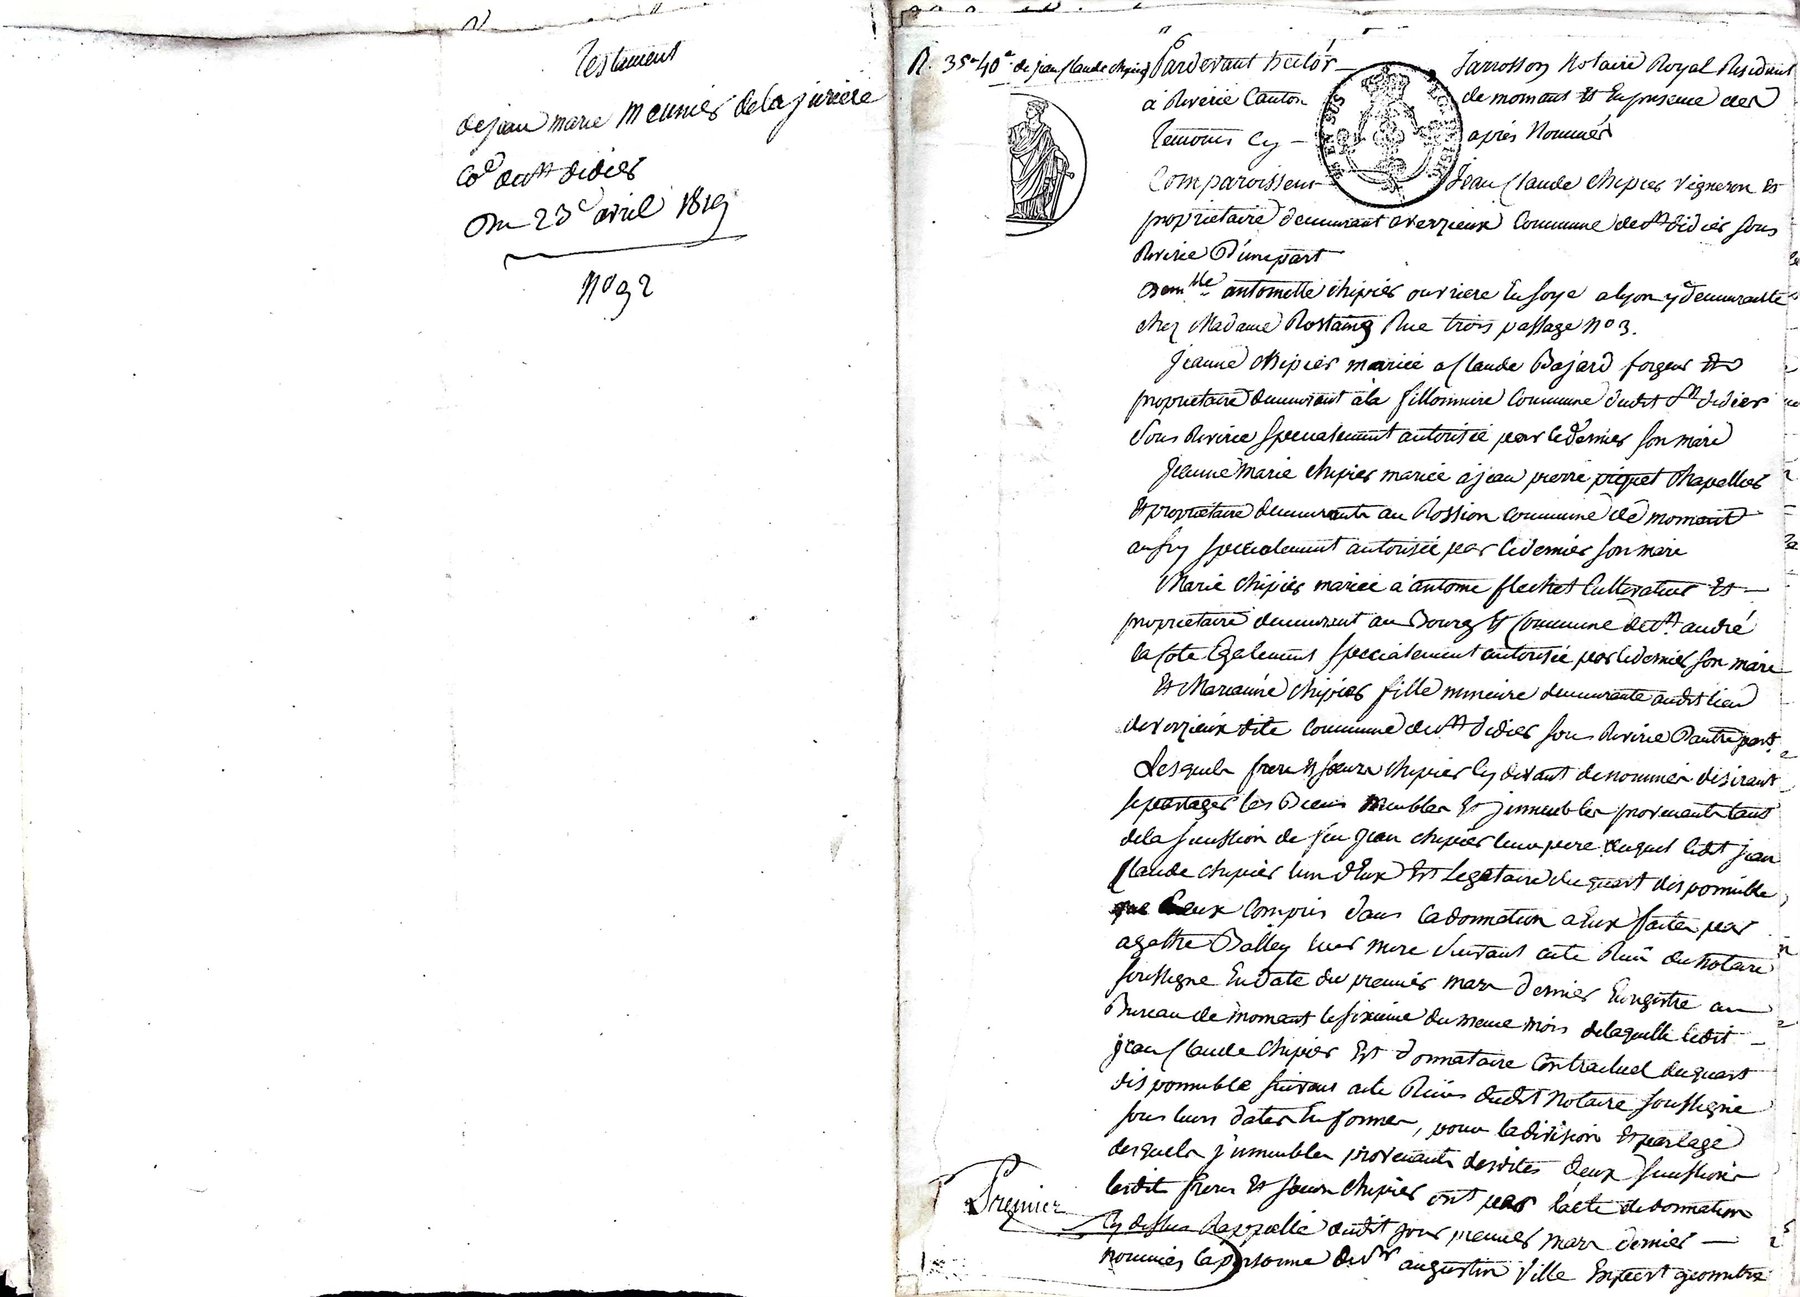 Testament
de jean marie meunier de la juriere
Coe de St didier
Du 23e avril 1819
No 92
R. 35-40c de jean Claude chipier
Pardevant hector Jarrosson Notaire Royal Résidant
à Riverie Canton de mornant Et En presence des
temoins Cy - après Nommés
Comparoissent Jean Claude chipier vigneron Et
proprietaire demeurant a verzieux Commune de St didier sous
Riverie D'une part
Demlle antoinette chipier ouvriere En soye a lyon y demeurante
chez Madame Rostaing Rue trois passage No 3.
Jeanne chipier mariée a Claude Bajard forgeur Et
proprietaire demeurant à la fillonniere Commune dudit St didier
sous Riverie specialement autorisée par le dernier son mari
Jeanne Marie chipier mariée à jean pierre piquet Chapellier
Et proprietaire demeurants au Rossion commune de mornant
specialement autorisée par le dernier son mari
Marie chipier mariée à antoine flechet Cultivateur Et
proprietaire demeurant au Bourg Et Commune de St andré
la Cote Egalement specialement autorisée par le dernier son mari
Et Marianne chipier fille mineure demeurante audit lieu
de verzieux dite commune de St didier sous Riverie D'autre part
Lesquels frere Et sœurs chipier Cy devant denommés desirant
se partager les Biens Meubles Et jmmeubles provenants tant
de la sucession de feu Jean chipier leur pere duquel ledit jean
Claude chipier l'un d'Eux Est Legataire du quart disponible
que Ceux Compris dans la donnation a Eux faite par
agathe Balley leur mere suivant acte Reçu du Notaire
soussigné En Date du premier mars Dernier Enregistré au
Bureau de mornant le sixieme du meme mois de laquelle ledit
jean Claude chipier Est Donnataire Contractuel du quart
disponible suivant acte Reçus dudit Notaire soussigné
sous leurs dates En formes, pour la division Et partage
desquels jmmeubles provenants desdites deux sucessions
lesdits freres Et sœurs chipier ont par l'acte de donnation
Cy dessus Rappellé dudit jour premier mars dernier
nommés la personne du Sr augustin Ville Expert geometre
Premier